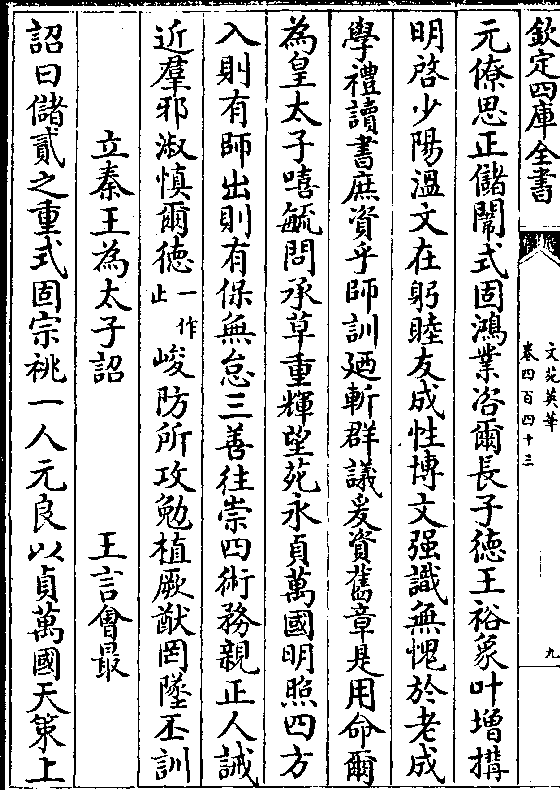 欽定四庫全書
文苑英華
卷四百四十三
九
元僚思正儲闈式固鴻業咨爾長子德王裕象叶增搆
明啓少陽溫文在躬睦友成性博文强識無愧於老成
學禮讀書庶資乎師訓廼斬群議爰資舊章是用命爾
為皇太子嘻毓問承草重輝望苑永貞萬國明照四方
入則有師出則有保無怠三善往崇四術務親正人誡
近羣邪淑慎爾德一作止峻防所攻勉植厥猷罔墜丕訓
立秦王為太子詔 王言會最
詔曰儲貳之重式固宗祧一人元良以貞萬國天策上